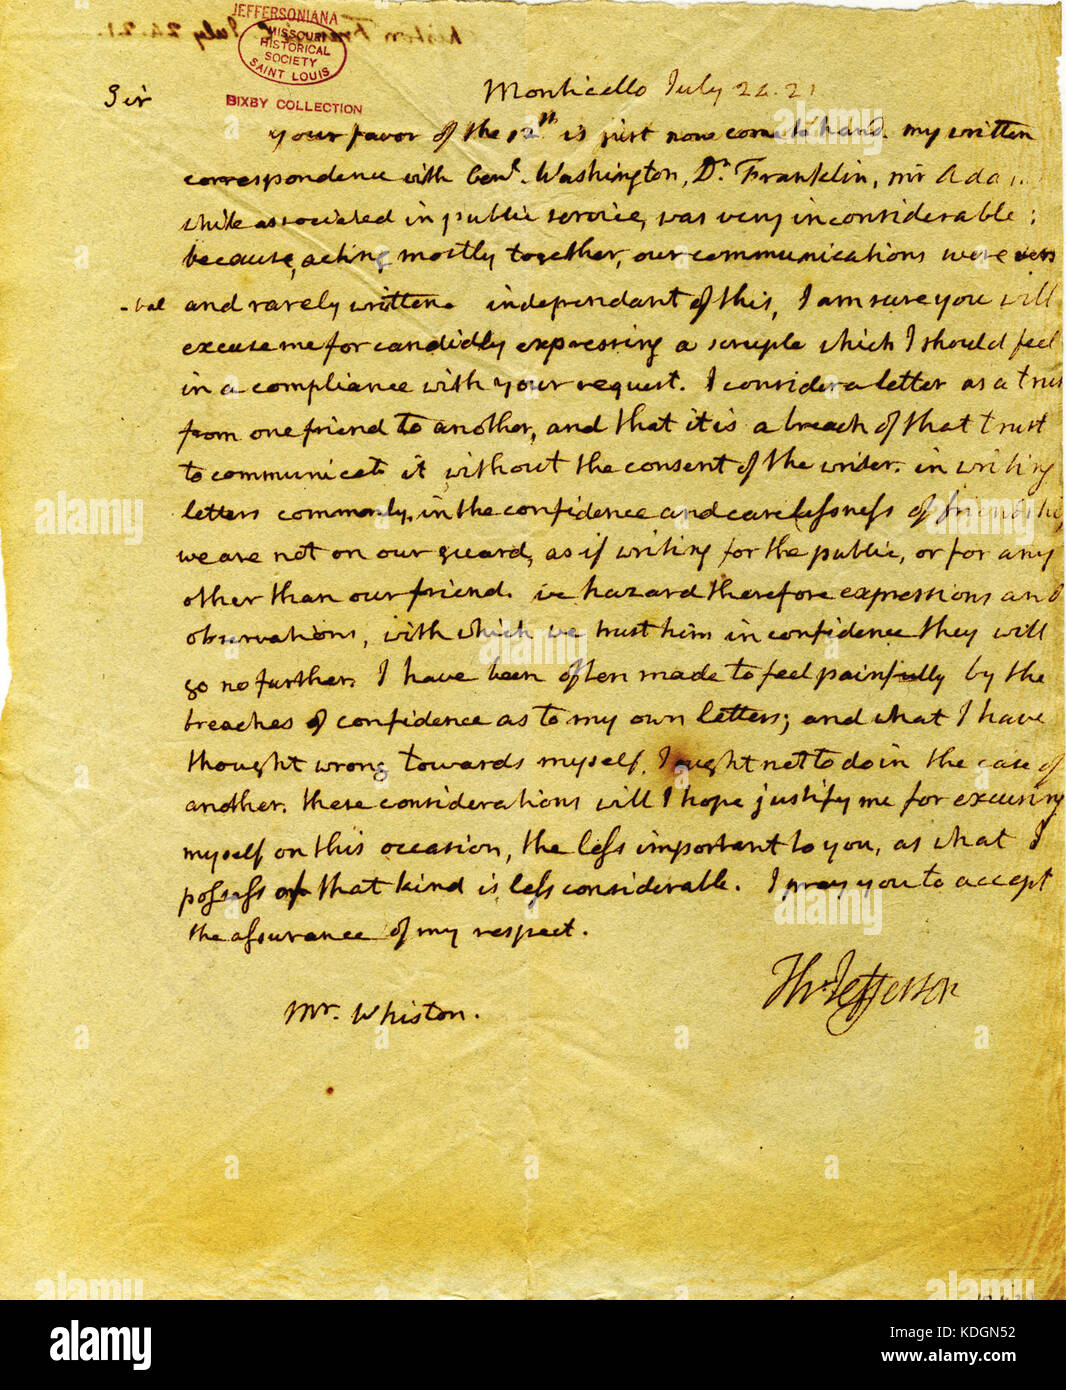 JEFFERSONIANA
MISSOURI
HISTORICAL
SOCIETY
SAINT LOUIS
BIXBY COLLECTION
Monticello July 24. 21
Sir
your favor of the 12th is just now come to hand. my written
correspondence with Genl. Washington, Dr. Franklin, mr Adams
while associated in public service, was very inconsiderable;
because, acting mostly together, our communications were ver-
-bal and rarely written. independant of this, I am sure you will
excuse me for candidly expressing a scruple which I should feel
in a compliance with your request. I consider a letter as a trust
from one friend to another, and that it is a breach of that trust
to communicate it without the consent of the writer. in writing
letters commonly, in the confidence and carelessness of friendship
we are not on our guard, as if writing for the public, or for any
other than our friend. we hazard therefore expressions and
observations, with which we trust him in confidence they will
go no further. I have been often made to feel painfully by the
breaches of confidence as to my own letters; and what I have
thought wrong towards myself, I ought not to do in the case of
another. these considerations will I hope justify me for excusing
myself on this occasion, the less important to you, as what I
possess of that kind is less considerable. I pray you to accept
the assurance of my respect.
Th: Jefferson
Mr. Whiston.
alamy
Image ID: KDGN52
www.alamy.com